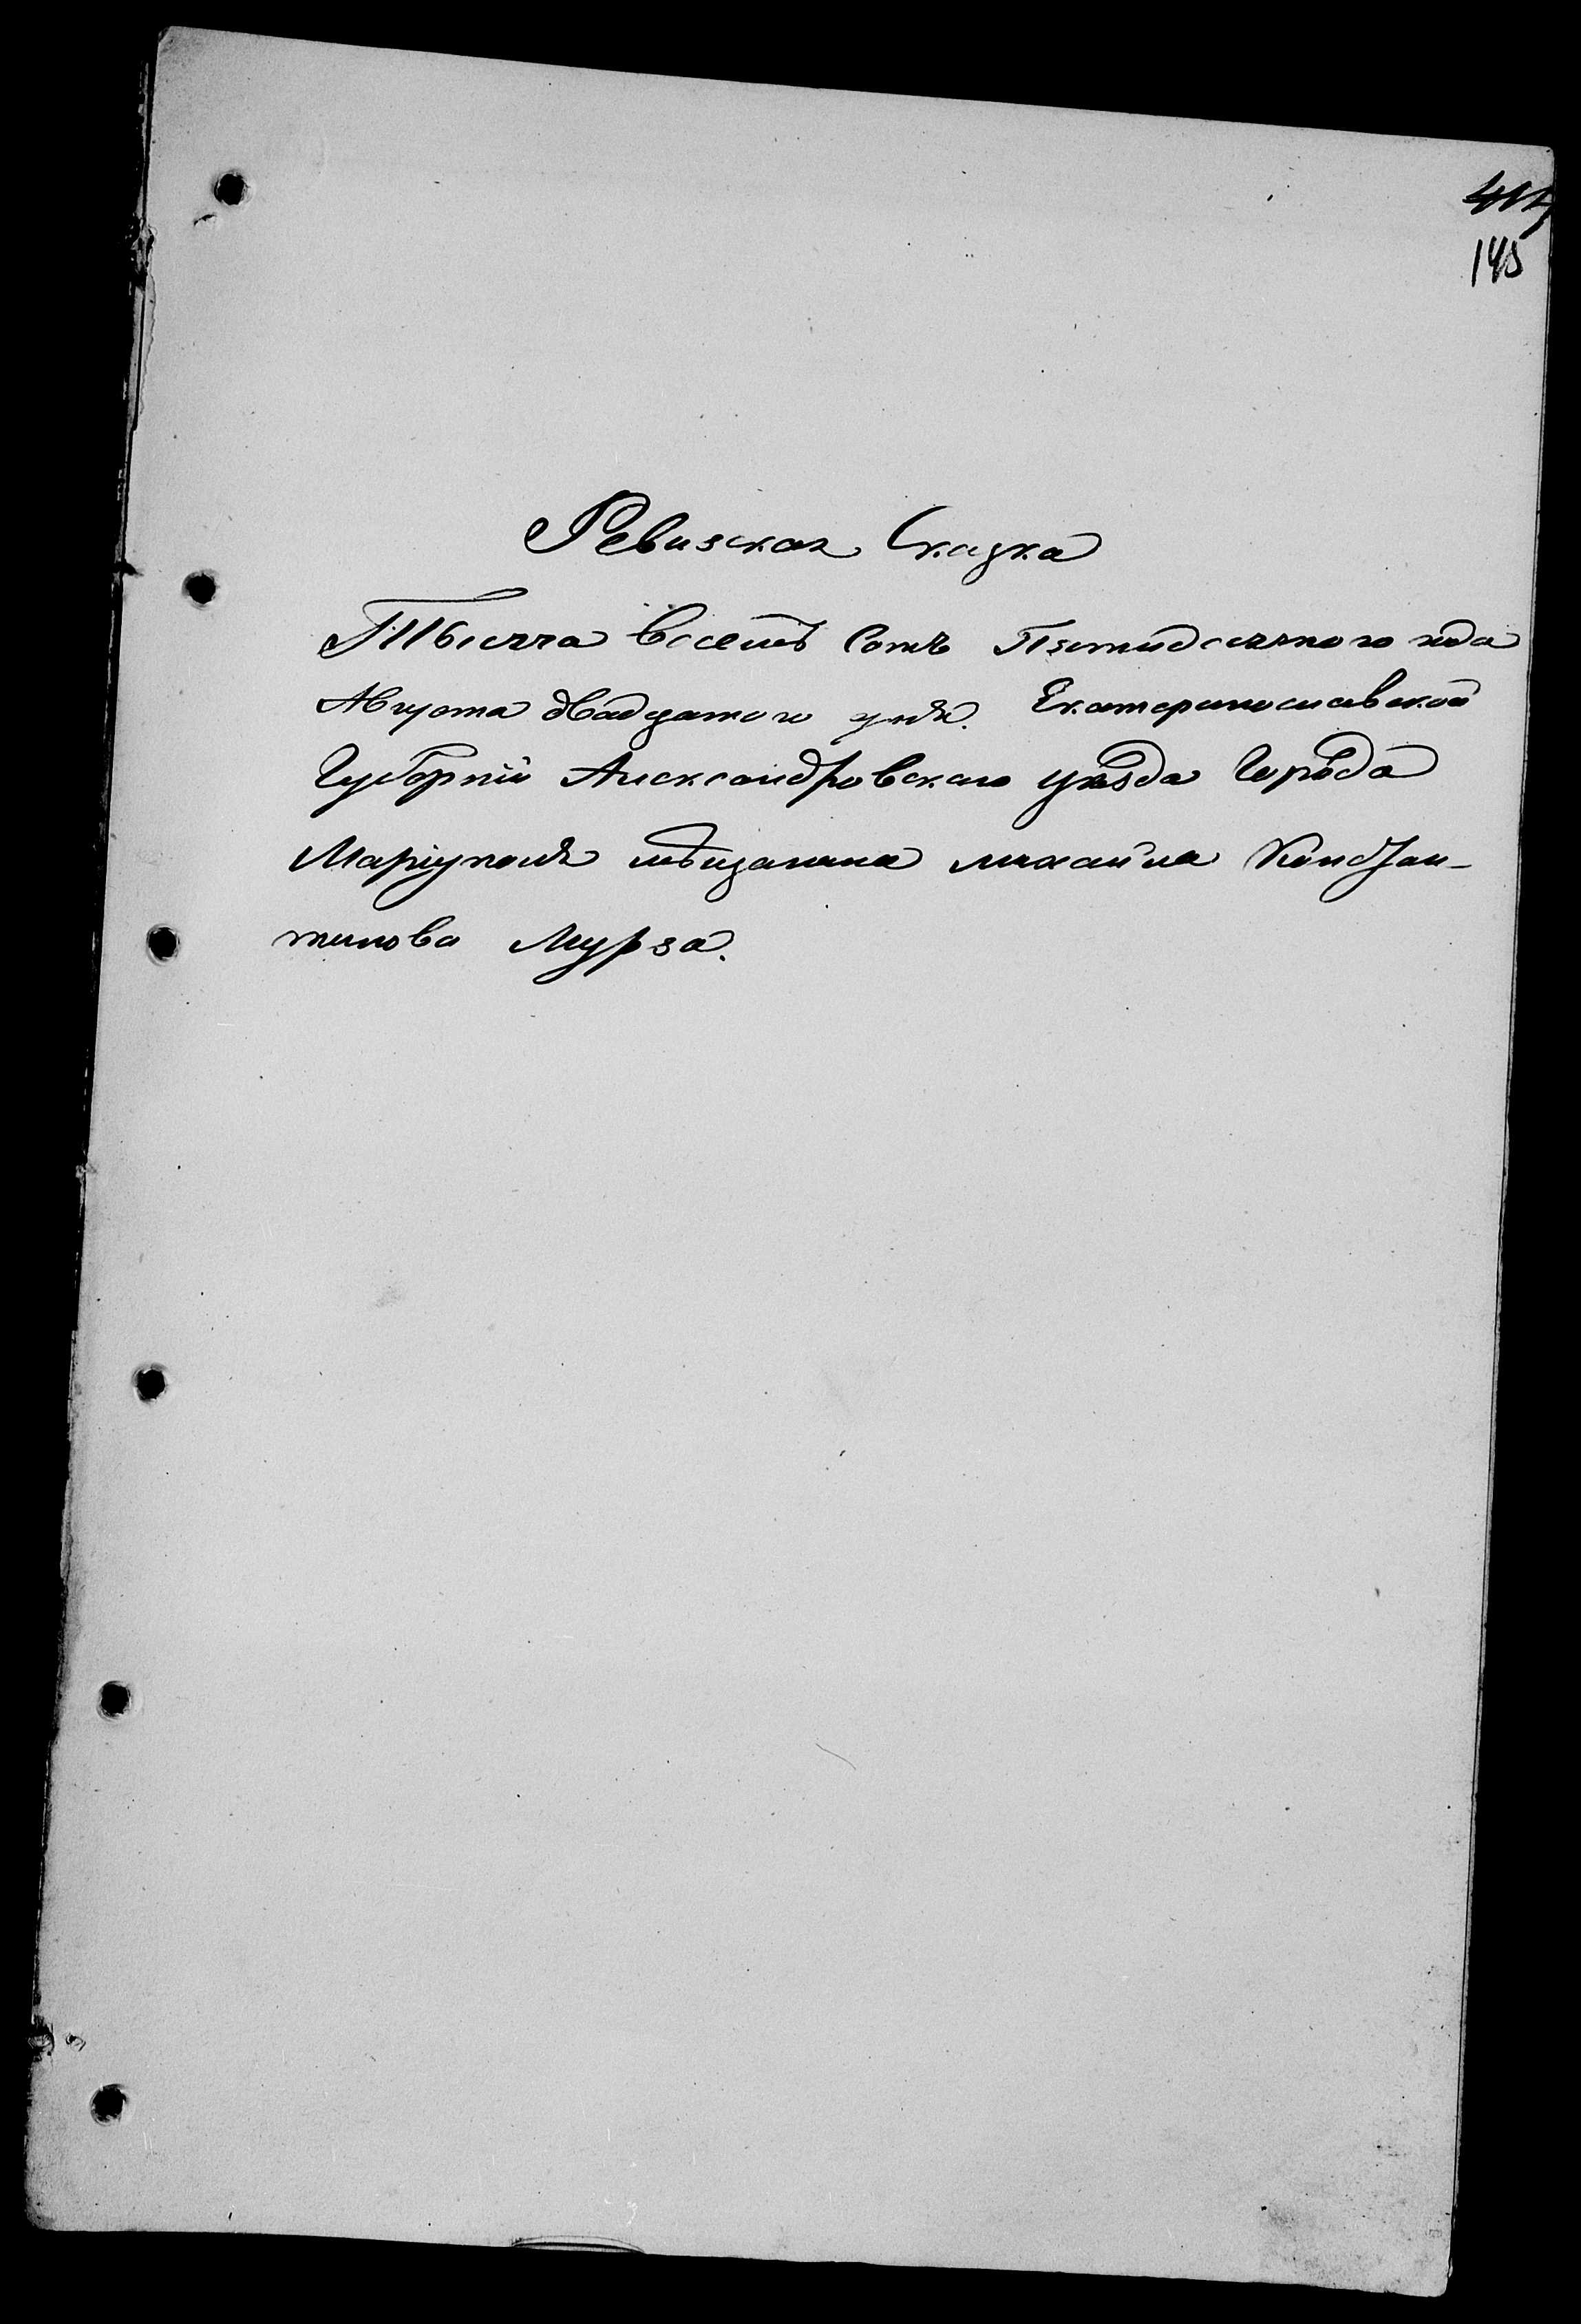 145
Ревизская Сказка
Тысяча восемь Сотъ Пятидесятаго года
Августа двадцатого дня. Екатеринославской
Губерніи Александровскаго уѣзда Города
Маріуполя мѣщанина михаила Констан-
тинова Мурза.